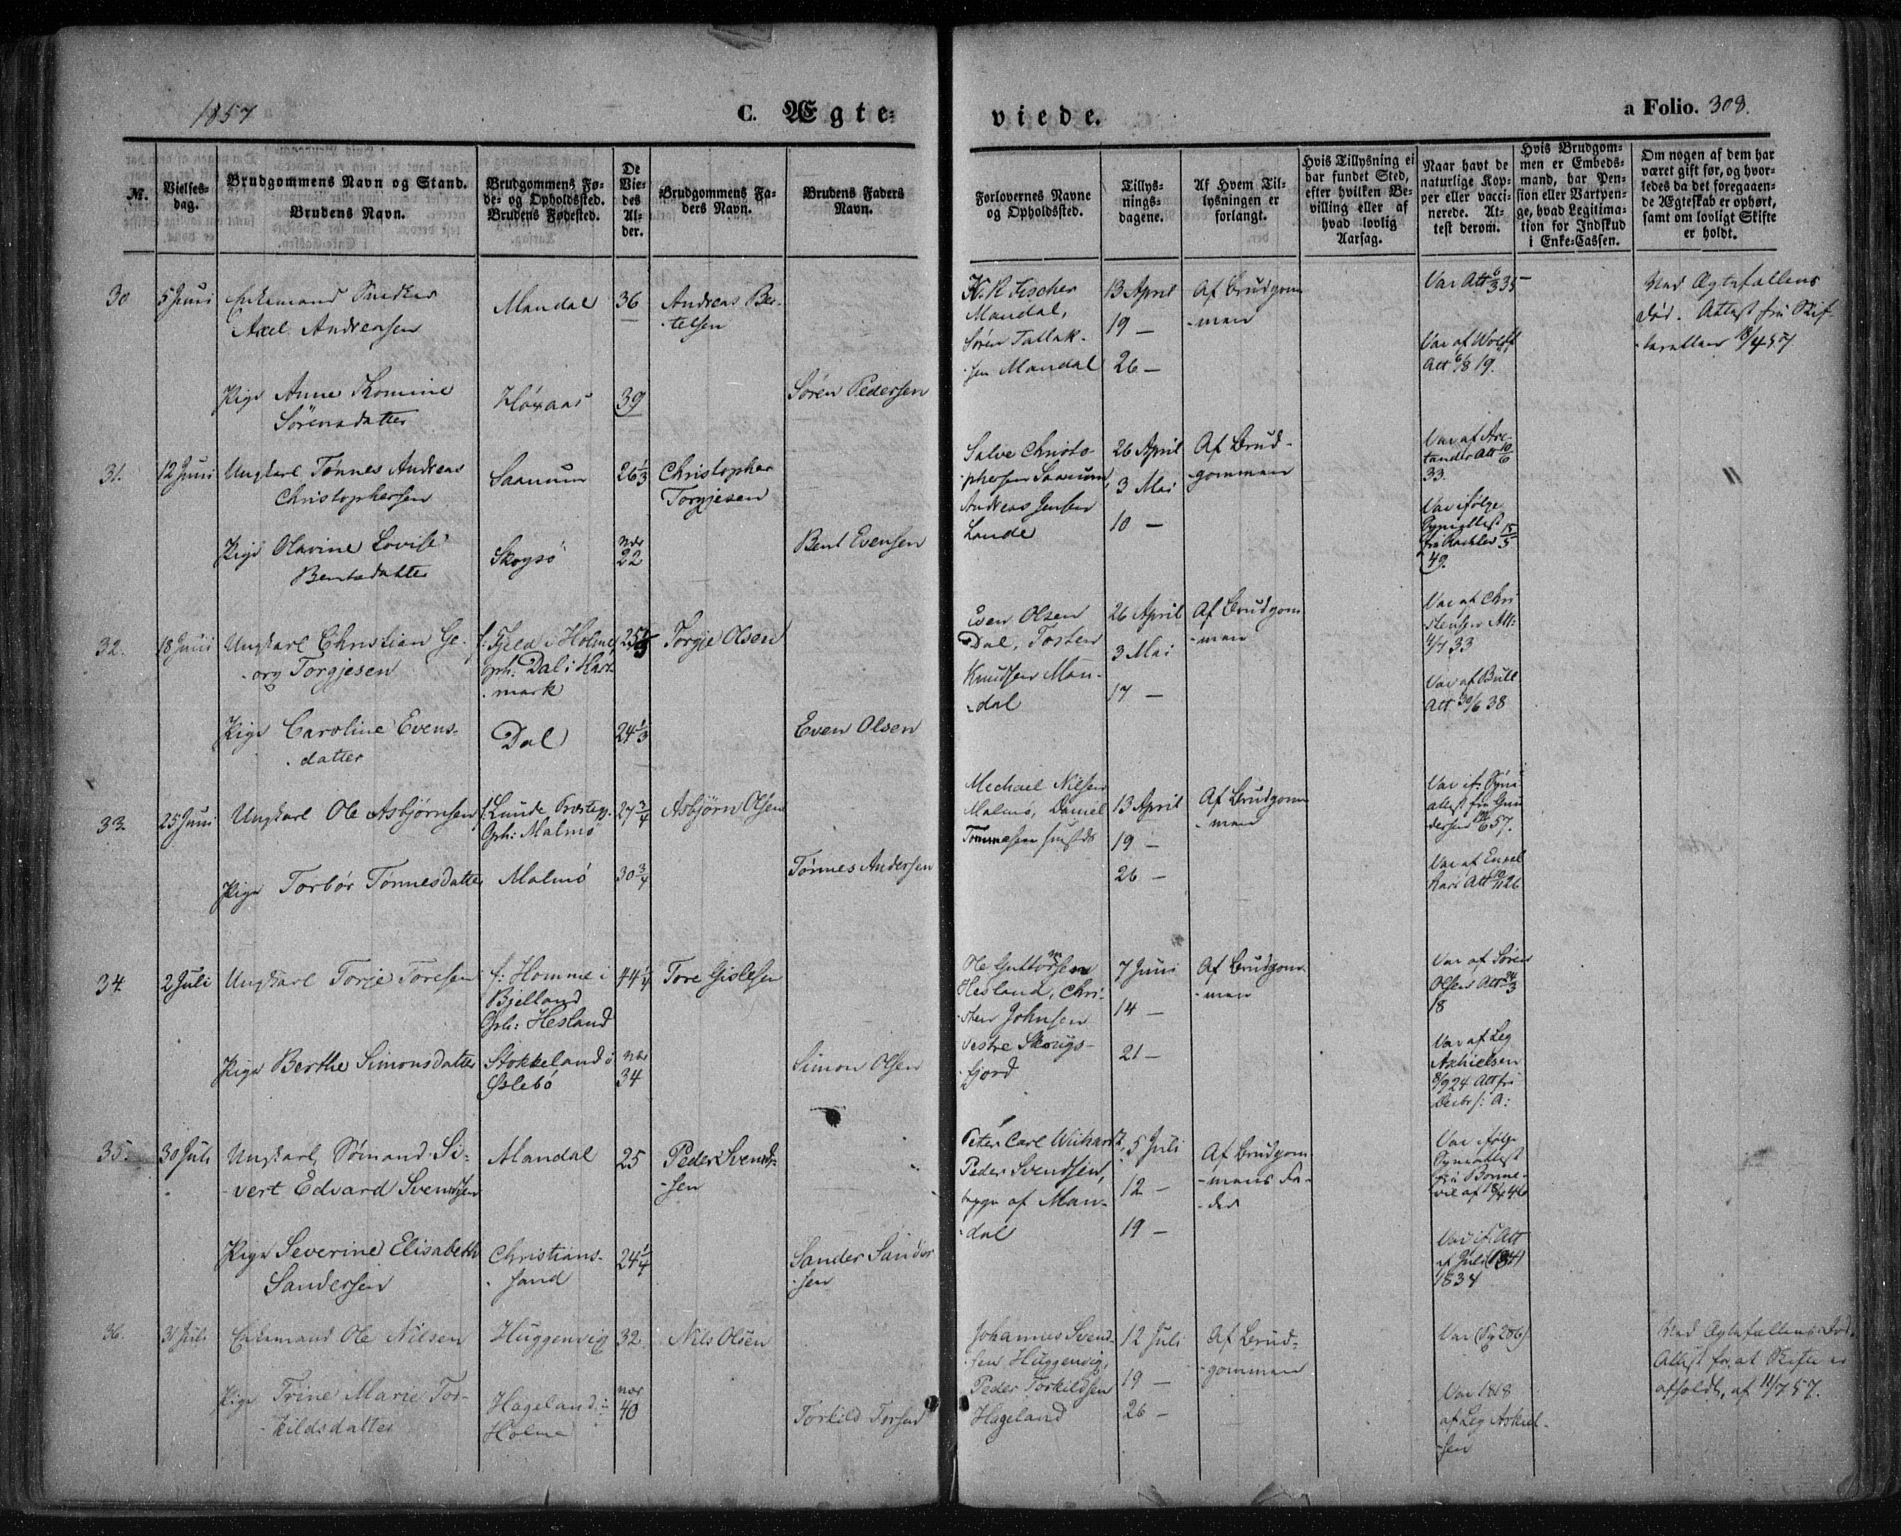 1857
C. Ægte-
viede.
a Folio. 308.
№.
Vielses-
dag.
Brudgommens Navn og Stand.
Brudens Navn.
Brudgommens Fø-
de- og Opholdssted.
Brudens Fødested.
De
Vie-
des
Al-
der.
Brudgommens Fa-
ders Navn.
Brudens Faders
Navn.
Forlovernes Navne
og Opholdssted.
Tillys-
nings-
dagene.
Af Hvem Til-
lysningen er
forlangt.
Hvis Tillysning ei
har fundet Sted,
efter hvilken Be-
villing eller af
hvad lovlig
Aarsag.
Naar havt de
naturlige Kop-
per eller vacci-
nerede. At-
test derom.
Hvis Brudgom-
men er Embeds-
mand, har Pen-
sion eller Vartpen-
ge, hvad Legitima-
tion for Indskud
i Enke-Cassen.
Om nogen af dem har
været gift før, og hvor-
ledes da det foregaaen-
de Ægteskab er ophørt,
samt om lovligt Skifte
er holdt.
30
5 Juni
Enkemand Snedker
Axel Andreasen
Mandal
36
Andreas Ber-
-telsen
K. R. Fischer
Mandal,
Søren Tallak-
-sen Mandal
13 April
19 —
26 —
Af Brudgom
-men
Var Att 6/3 35
Ved Ægtefællens
Død. Attest fra Skif-
-teretten /4 57
Pige Anne Thomine
Sørensdatter
Høxaas
39
Søren Pedersen
Var af Wolff
Att 6/8 19.
31.
12 Juni
Ungkarl Tønnes Andreas
Christophersen
Saanum
26 1/3
Christopher
Torgjesen
Salve Christo-
-phersen Saanum,
Andreas Jensen
Lande
26 April
3 Mai
10 —
Af Brud-
-gommen
Var af Are-
tander Att 10/6
33.
"
Pige Olavine Lovise
Bentsdatter
Skogsø
nær
22
Bent Evensen
Var ifølge
15/5
49.
32.
18 Juni
Ungkarl Christian Ge-
-org Torgjesen
f: Fjeld i Holme
Oph: Dal i Hart
-mark
25
Torgje Olsen
Even Olsen
Dal, Tosten
Knudsen Man-
-dal
26 April
3 Mai
17 —
Af Brudgom
-men
Var af Chri
stensen Att:
4/7 33
Pige Caroline Evens-
-datter
Dal
24 1/3
Even Olsen
Var af Bull
Att 30/6 38
33.
25 Juni
Ungkarl Ole Asbjørnsen
f: Lunde Præstegj.
Oph: Malmø
27 3/4
Asbjørn Olsen
Michael Nilsen
Malmø, Daniel
Tønnesen
13 April
19 —
26 —
Af Brudgom
-men
Var if: Syns
attest fra Gun
dersen 57.
Pige Torbør Tønnesdatter
Malmø
30 3/4
Tønnes Andersen
Var af Engel
Att 26
34.
2 Juli
Ungkarl Torje Toresen
f: Homme i
Bjelland
Oph: Hesland
44 1/4
Tore Gislesen
Ole Guttormsen
Hesland, Chri-
-sten Johnsen
vestre Skougs-
-fjord
7 Juni
14 —
21 —
Af Brudgom
-men
Var af Søren
Olsens Att 24/3
18
Pige Berthe Simonsdatter
Stokkeland i
Øslebø
nær
34
Simon Olsen
Var af Leg
Askielsen
8/9 24 Att fra
35.
30 Juli
Ungkarl, Sømand Si-
-vert Edvard Svendsen
Mandal
25
Peder Svend-
-sen
Peter Carl Wichardt,
Peder Svendsen,
begge af Man-
-dal
5 Juli
12 —
19 —
Af Brudgom
-mens Fa-
-der
Var ifølge
Synsattest
fra Bonne-
vie af 46
Pige Severine Elisabeth
Sandersen
Christians-
-sand
24 1/4
Sander Sander
-sen
Var if: Att
af Juli
1834
36.
31 Juli
Enkemand Ole Nilsen
Huggenvig
32
Nils Olsen
Johannes Svend-
-sen Huggenvig,
Peder Torkildsen
Hageland
12 Juli
19 —
26 —
Af Brud-
-gommen
Var (Pg 206).
Ved Ægtefællens Død.
Attest for, at Skifte er
afholdt, af 11/7 57.
Pige Trine Marie Tor-
-kildsdatter
Hageland i
Holme
nær
40
Torkild Torsen
Var 1818
af Leg Askiel-
-sen